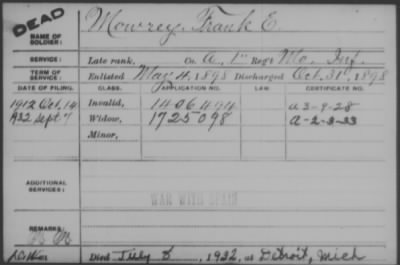 DEAD
NAME OF SOLDIER: Mowrey, Frank E.
SERVICE: Late rank, Co. A, 1st Regt Mo. Inf.
TERM OF SERVICE: Enlisted May 4, 1898 Discharged Oct. 31, 1898
DATE OF FILING. CLASS. APPLICATION NO. LAW. CERTIFICATE NO.
1912 Oct. 14 Invalid, 1406494 a 3-9-28
1932 Sept 7 Widow, 1725098 a-2-3-33
Minor,
ADDITIONAL SERVICES:
WAR WITH SPAIN
REMARKS:
Died July 5, 1932, at Detroit, Mich